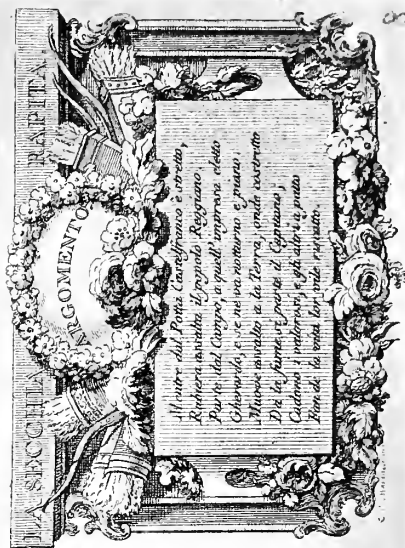 LA SECCHIA RAPITA
ARGOMENTO
Mentre dal Potta Castelfranco è stretto,
Rubiera assalta il popolo Reggiano;
Parte dal Campo, a quell' impresa eletto
Gherardo, e se ne va notturno e piano;
Muove assalto a la Terra, onde costretto
Da la fame si parte il Capitano;
Cadono i valorosi, e gli altri a patto
Fan de la vita lor vile riscatto.